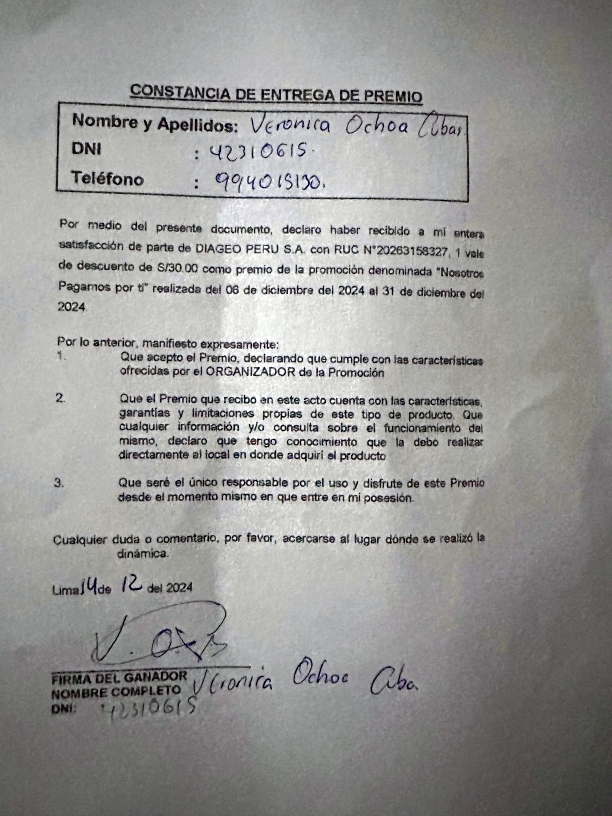 CONSTANCIA DE ENTREGA DE PREMIO
Nombre y Apellidos: Veronica Ochoa
DNI : 42310615.
Teléfono : 994015130.
Por medio del presente documento, declaro haber recibido a mi entera
satisfacción de parte de DIAGEO PERU S.A. con RUC N°20263158327, 1 vale
de descuento de S/30.00 como premio de la promoción denominada "Nosotros
Pagamos por ti" realizada del 06 de diciembre del 2024 al 31 de diciembre del
2024.
Por lo anterior, manifiesto expresamente:
1. Que acepto el Premio, declarando que cumple con las características
ofrecidas por el ORGANIZADOR de la Promoción
2. Que el Premio que recibo en este acto cuenta con las características,
garantías y limitaciones propias de este tipo de producto. Que
cualquier información y/o consulta sobre el funcionamiento del
mismo, declaro que tengo conocimiento que la debo realizar
directamente al local en donde adquirí el producto
3. Que seré el único responsable por el uso y disfrute de este Premio
desde el momento mismo en que entre en mi posesión.
Cualquier duda o comentario, por favor, acercarse al lugar dónde se realizó la
dinámica.
Lima 14 de 12 del 2024
FIRMA DEL GANADOR
NOMBRE COMPLETO Veronica Ochoa
DNI: 42310615